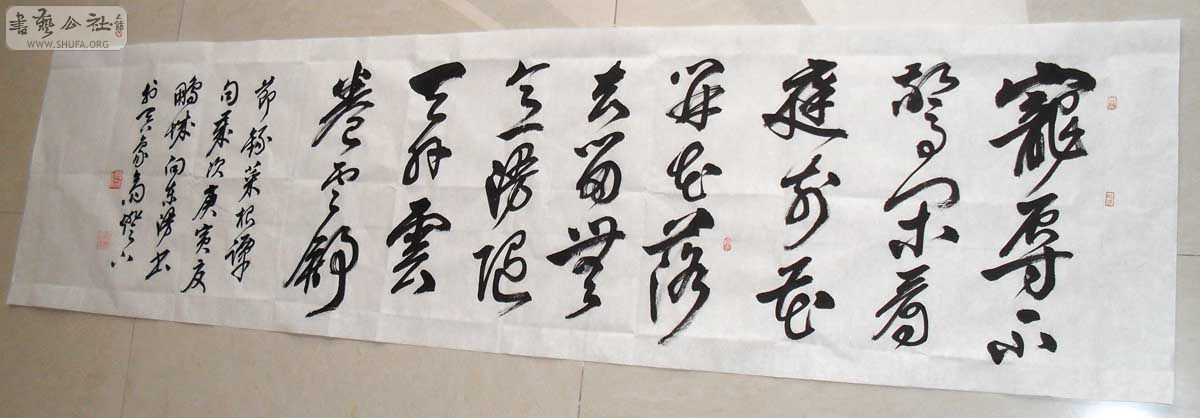 書藝公社
WWW.SHUFA.ORG
寵辱不
驚閑看
庭前花
開花落
去留無
意漫隨
天外雲
卷雲舒
節錄菜根譚
句歲次庚寅夏
鵬城向東書
燈下